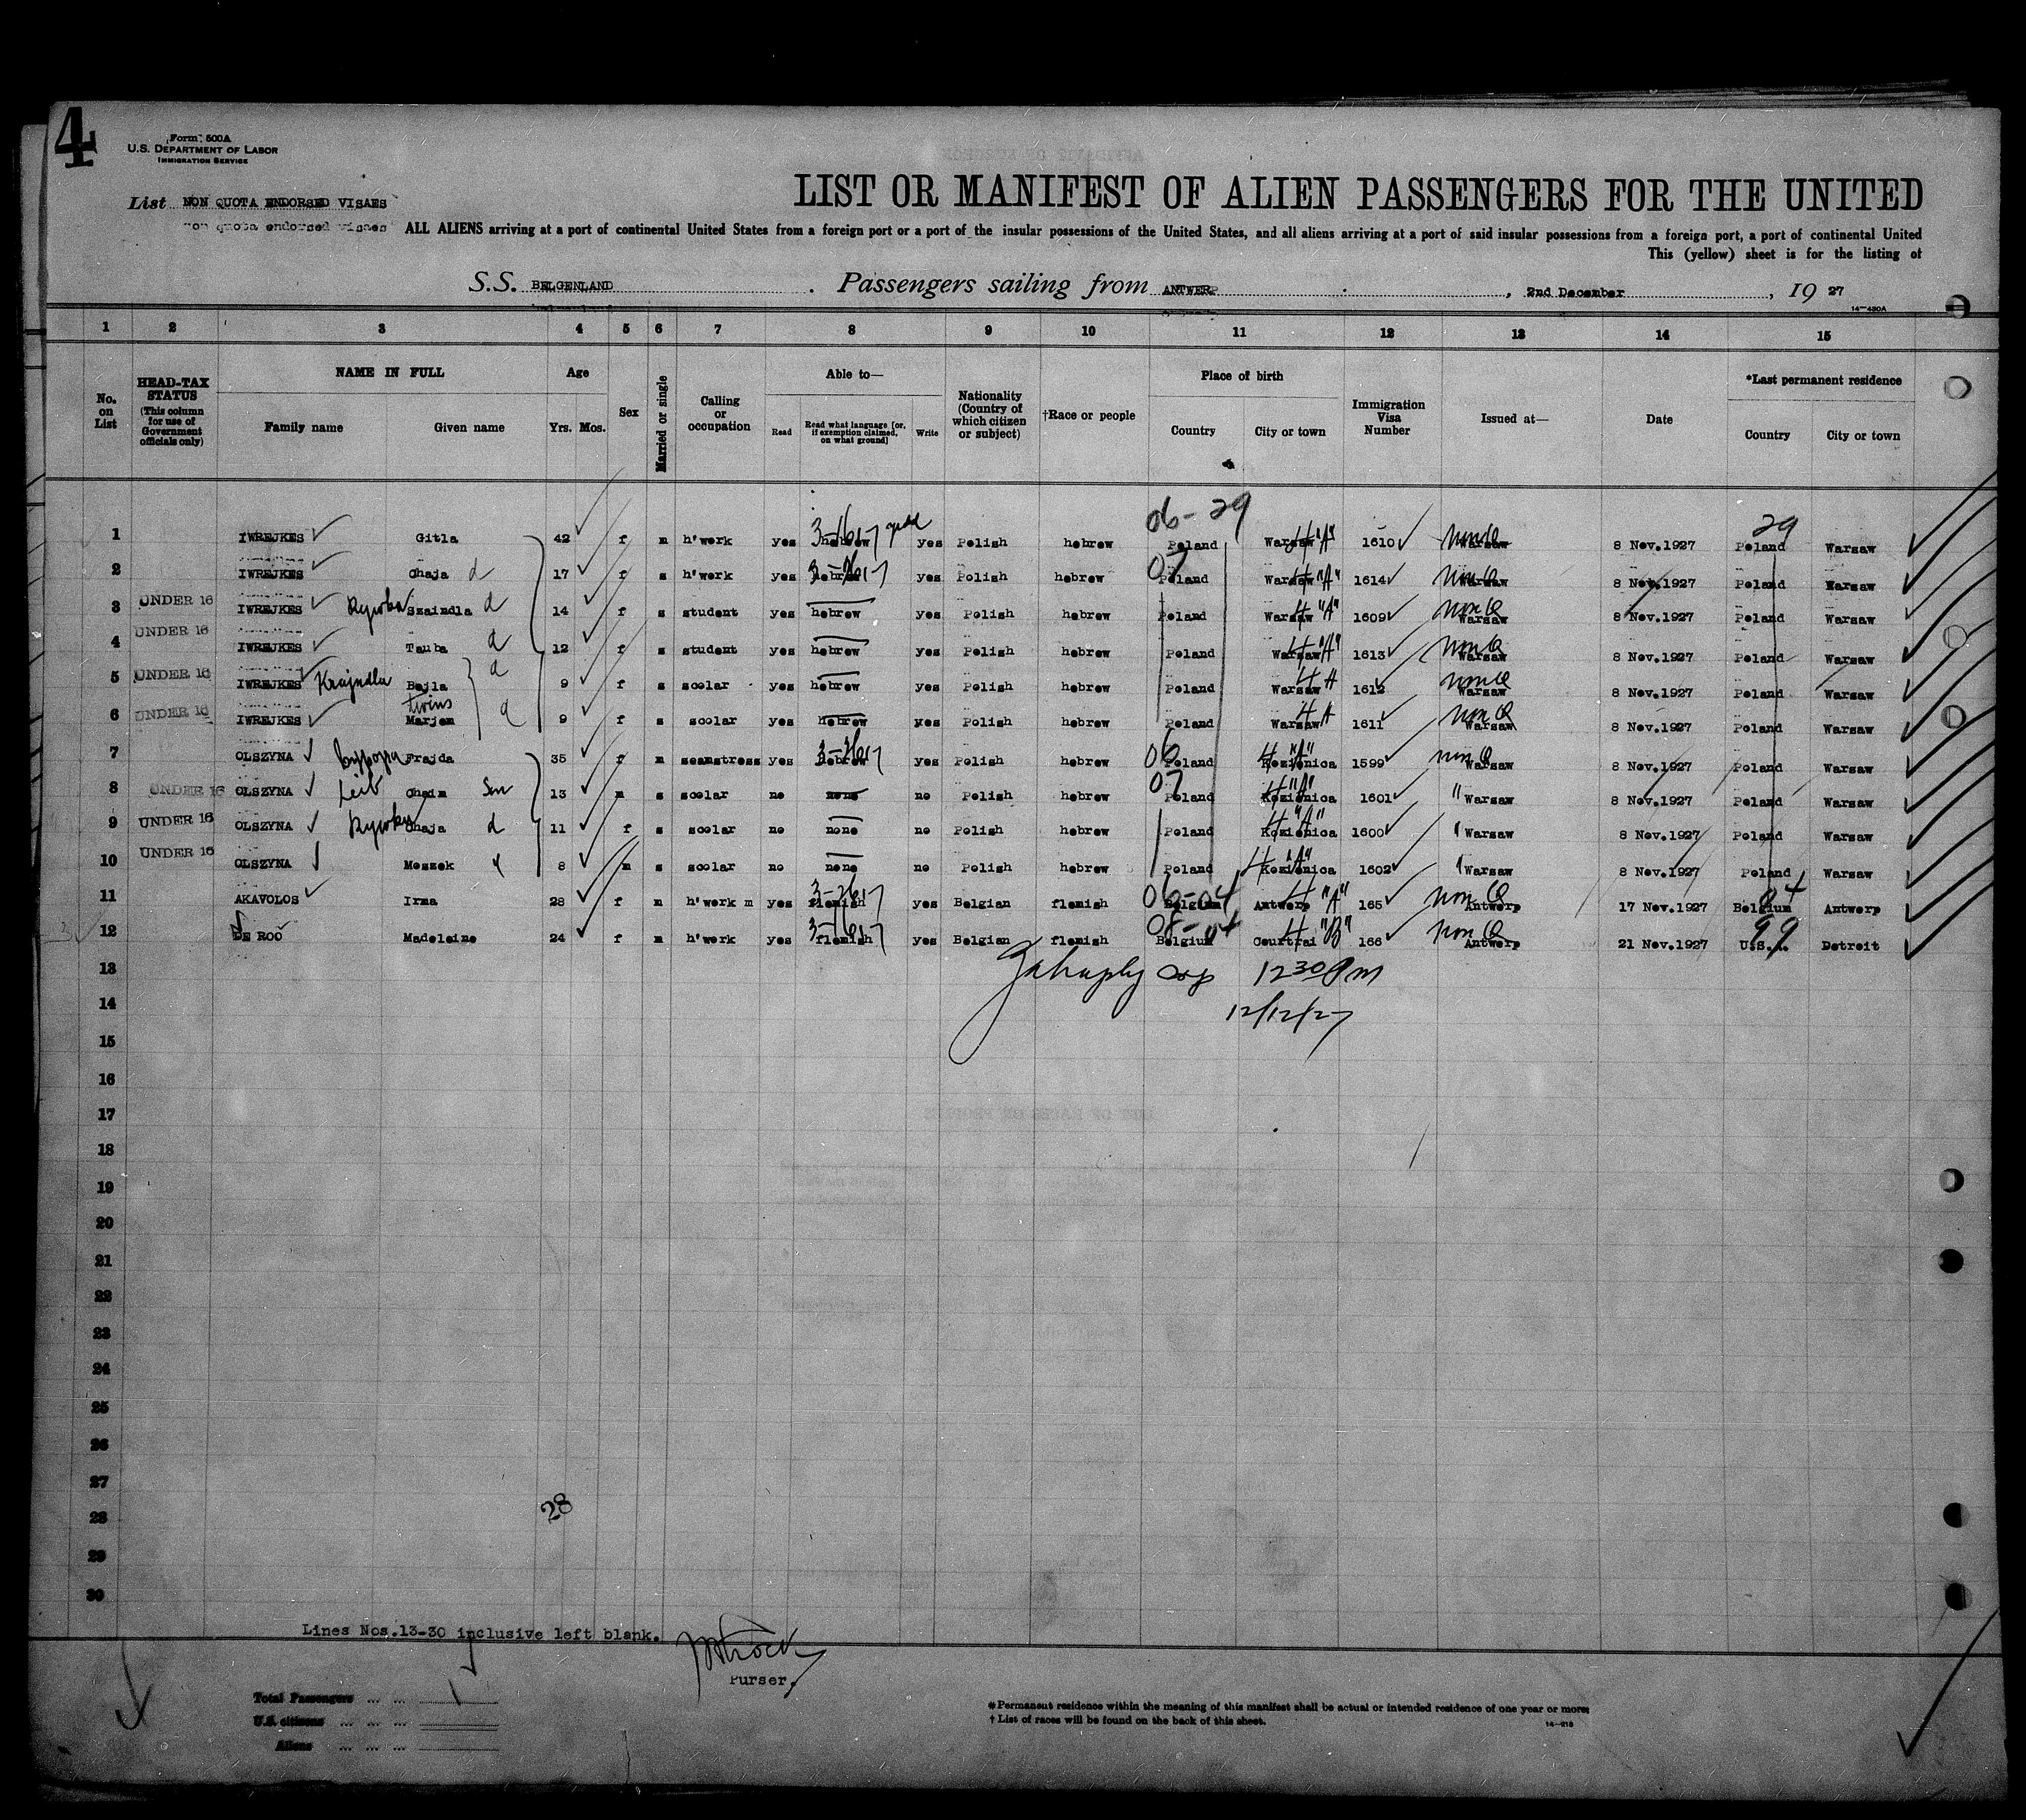 4
Form 500A
U.S. DEPARTMENT OF LABOR
IMMIGRATION SERVICE
LIST OR MANIFEST OF ALIEN PASSENGERS FOR THE UNITED
List NON QUOTA ENDORSED VISAES
non quota endorsed visaes
ALL ALIENS arriving at a port of continental United States from a foreign port or a port of the insular possessions of the United States, and all aliens arriving at a port of said insular possessions from a foreign port, a port of continental United
This (yellow) sheet is for the listing of
S.S. BELGENLAND . Passengers sailing from ANTWERP , 2nd December , 19 27
14-430A
1 2 3 4 5 6 7 8 9 10 11 12 13 14 15
No. on List
HEAD-TAX STATUS (This column for use of Government officials only)
NAME IN FULL Family name Given name
Age Yrs. Mos.
Sex
Married or single
Calling or occupation
Able to— Read Read what language [or, if exemption claimed, on what ground] Write
Nationality (Country of which citizen or subject)
†Race or people
Place of birth Country City or town
Immigration Visa Number
Issued at—
Date
*Last permanent residence Country City or town
06-29 29
1 IWREJKES Gitla 42 f m h'work yes hebrew yes Polish hebrew Poland Warsaw 4 "A" 1610 Non Q Warsaw 8 Nov.1927 Poland Warsaw
2 IWREJKES Chaja d 17 f s h'work yes hebrew yes Polish hebrew 07 Poland Warsaw 4 "A" 1614 Non Q Warsaw 8 Nov.1927 Poland Warsaw
3 UNDER 16 IWREJKES Rywka Szaindla d 14 f s student yes hebrew yes Polish hebrew Poland Warsaw 4 "A" 1609 Non Q Warsaw 8 Nov.1927 Poland Warsaw
4 UNDER 16 IWREJKES Tauba d 12 f s student yes hebrew yes Polish hebrew Poland Warsaw 4 "A" 1613 Non Q Warsaw 8 Nov.1927 Poland Warsaw
5 UNDER 16 IWREJKES Krajndla Bejla d 9 f s scolar yes hebrew yes Polish hebrew Poland Warsaw 4 A 1612 Non Q Warsaw 8 Nov.1927 Poland Warsaw
twins
6 UNDER 16 IWREJKES Marjem d 9 f s scolar yes hebrew yes Polish hebrew Poland Warsaw 4 A 1611 Non Q Warsaw 8 Nov.1927 Poland Warsaw
7 OLSZYNA Frajda 35 f m seamstress yes hebrew yes Polish hebrew 06 Poland Kozienica 4 "A" 1599 Non Q Warsaw 8 Nov.1927 Poland Warsaw
8 UNDER 16 OLSZYNA Leib Chaim Son 13 m s scolar no none no Polish hebrew 07 Poland Kozienica 4 "A" 1601 " Warsaw 8 Nov.1927 Poland Warsaw
9 UNDER 16 OLSZYNA Rywka Chaja d 11 f s scolar no none no Polish hebrew Poland Kozienica 4 "A" 1600 " Warsaw 8 Nov.1927 Poland Warsaw
10 UNDER 16 OLSZYNA Moszek 8 m s scolar no none no Polish hebrew Poland Kozienica 4 "A" 1602 " Warsaw 8 Nov.1927 Poland Warsaw
11 AKAVOLOS Irma 28 f m h'work m yes flemish yes Belgian flemish 06-04 Belgium Antwerp 4 "A" 165 Non Q Antwerp 17 Nov.1927 Belgium 04 Antwerp
12 DE ROO Madeleine 24 f m h'work yes flemish yes Belgian flemish 08-04 Belgium Courtrai 4 "B" 166 Non Q Antwerp 21 Nov.1927 U.S.A. 99 Detroit
13 12 30 PM
14 12/12/27
15
16
17
18
19
20
21
22
23
24
25
26
27
28 28
29
30
Lines Nos.13-30 inclusive left blank.
Purser.
Total Passengers ... ...
U.S. citizens ... ... ...
Aliens ... ... ...
*Permanent residence within the meaning of this manifest shall be actual or intended residence of one year or more.
† List of races will be found on the back of this sheet.
14-213